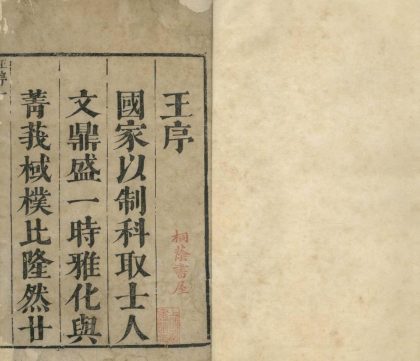 王序
國家以制科取士人
文鼎盛一時雅化與
菁莪棫樸比隆然廿
王序一
桐蔭書屋